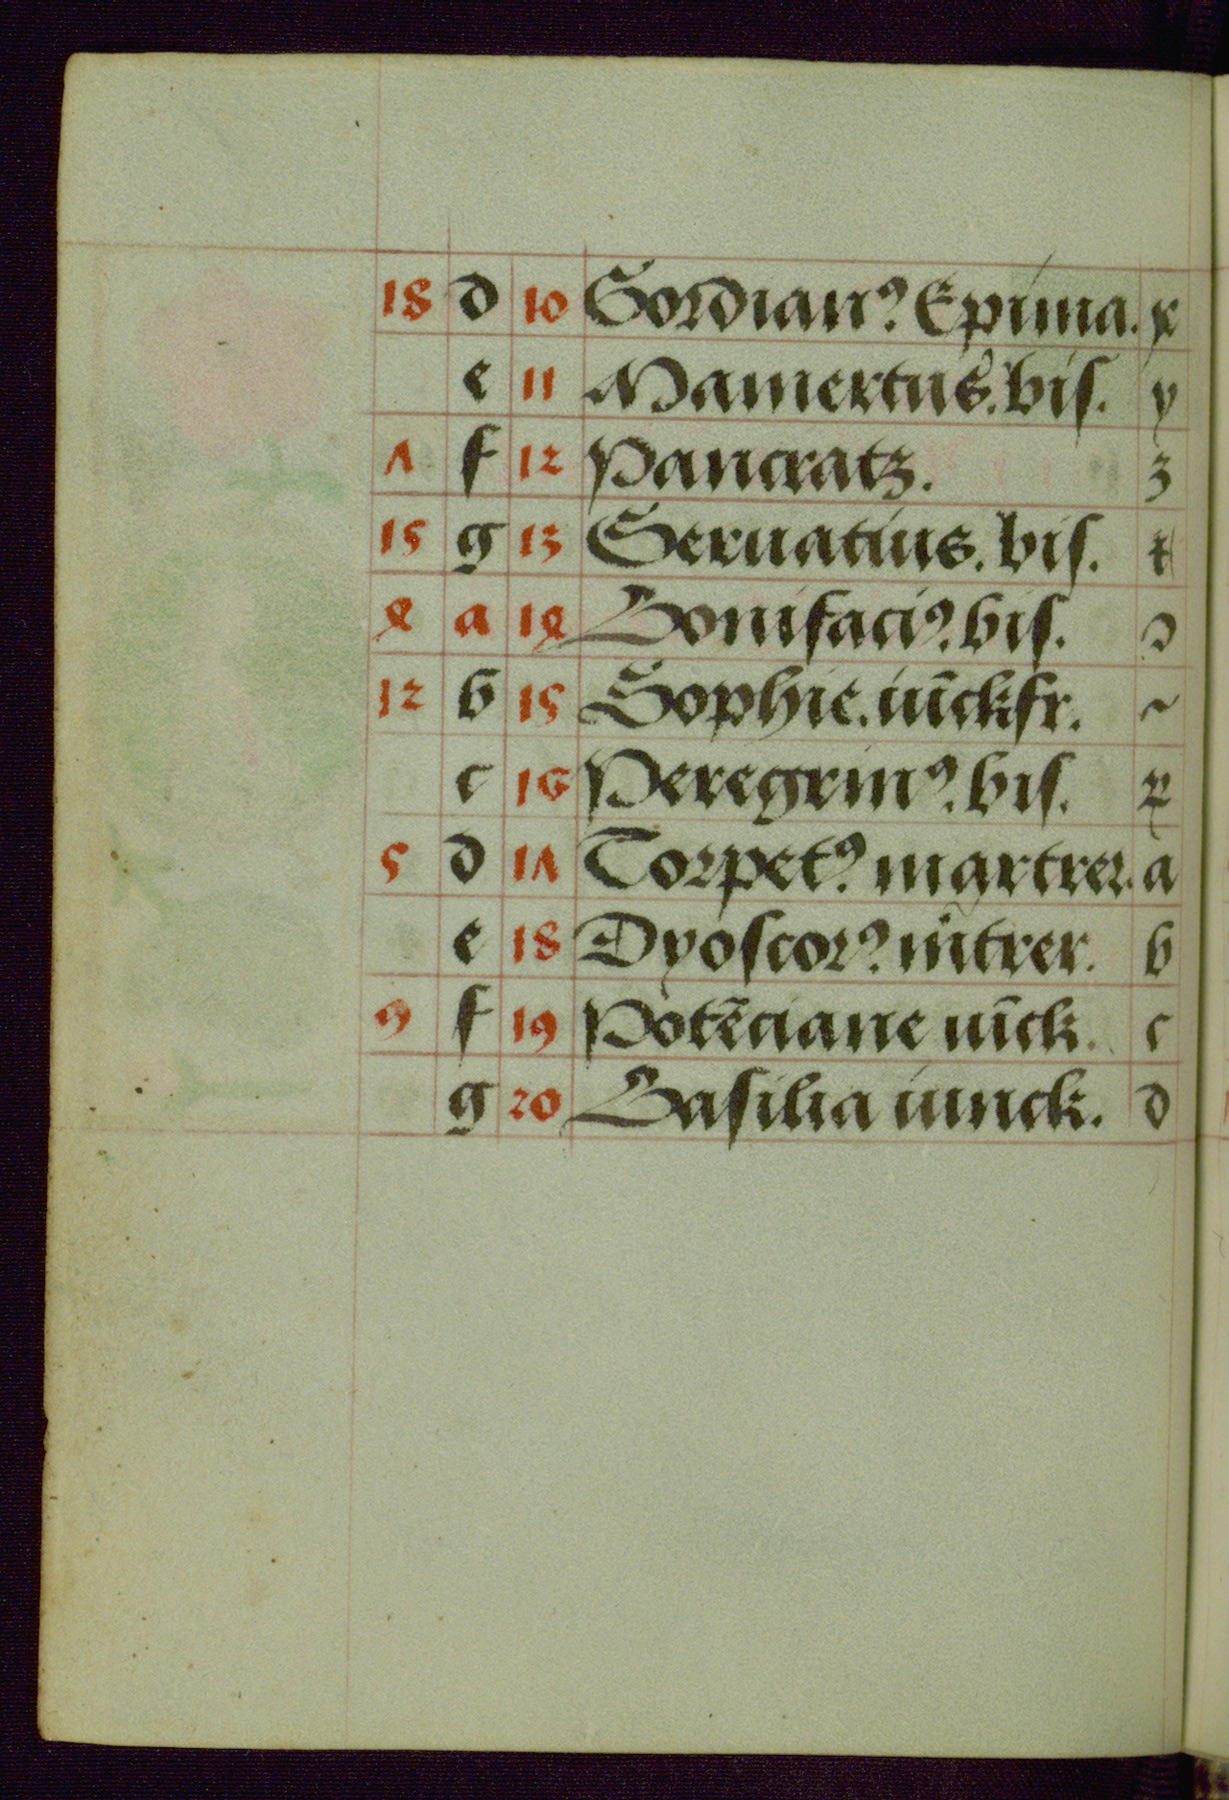 18 d 10 Gordianꝰ Epima. x
e 11 Mamertus. bis. y
7 f 12 Pancratz. z
15 g 13 Seruatius. bis.
4 a 14 Bonifaciꝰ. bis. ꝺ
12 b 15 Sophie. iūckfr. ~
c 16 Peregrinꝰ. bis.
5 d 17 Torpetꝰ martrer. a
e 18 Dyoscorꝰ. mtrer. b
9 f 19 Potēciane iūck. c
g 20 Basilia iunck. d